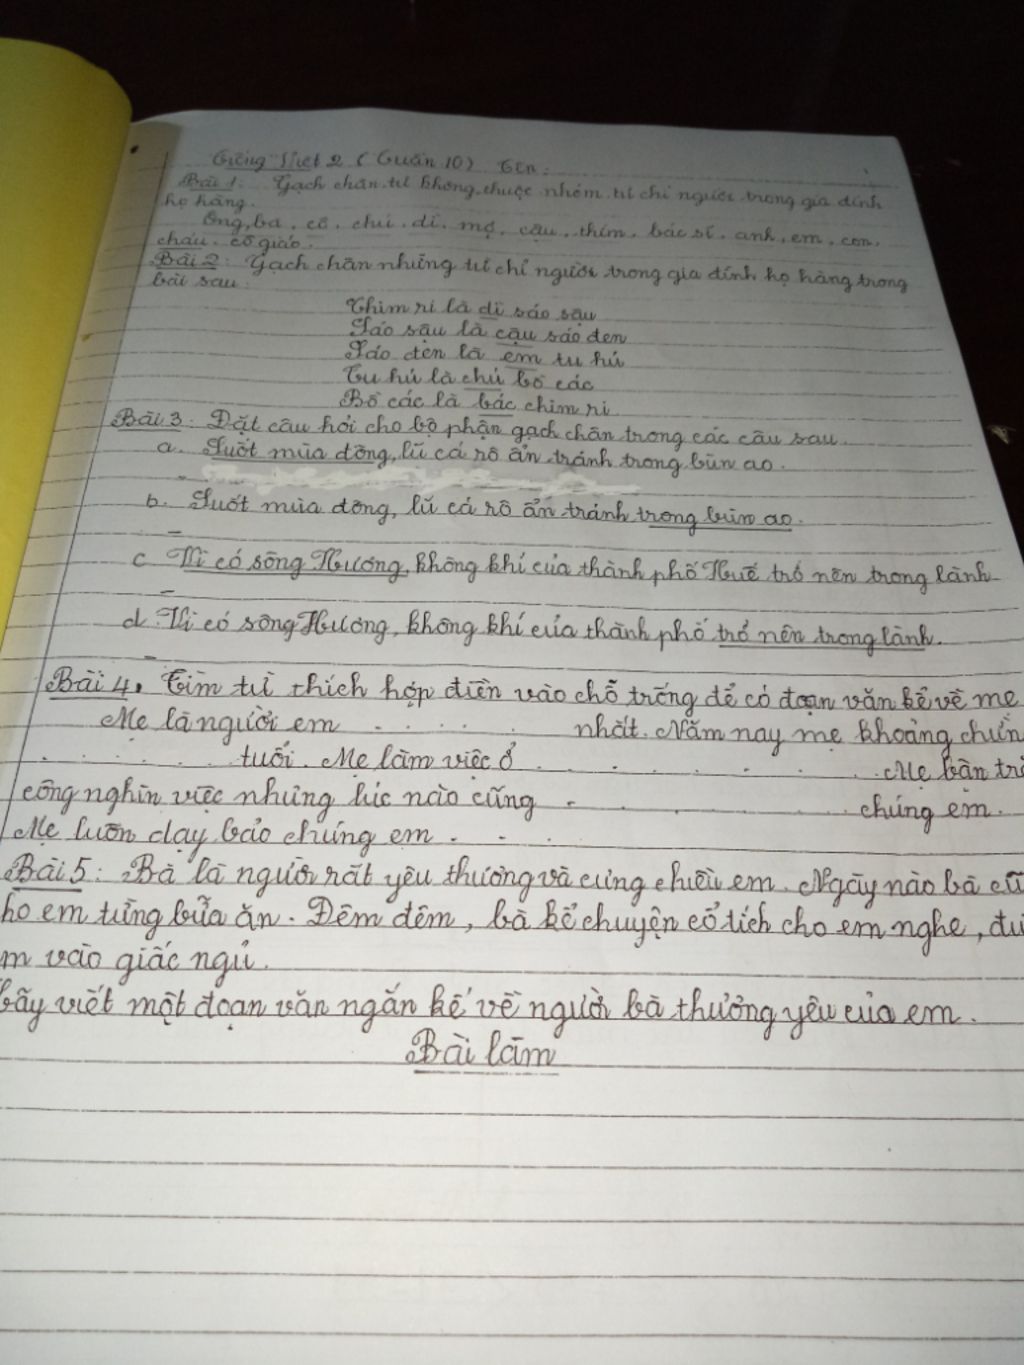 Tiếng Việt 2 (Tuần 10) Tên:
Bài 1: Gạch chân từ không thuộc nhóm từ chỉ người trong gia đình
họ hàng.
Ông, bà, cô, chú, dì, mợ, cậu, thím, bác sĩ, anh, em, con,
cháu, cô giáo.
Bài 2: Gạch chân những từ chỉ người trong gia đình họ hàng trong
bài sau:
Chim ri là dì sáo sậu
Sáo sậu là cậu sáo đen
Sáo đen là em tu hú
Tu hú là chú bồ các
Bồ các là bác chim ri
Bài 3: Đặt câu hỏi cho bộ phận gạch chân trong các câu sau.
a. Suốt mùa đông, lũ cá rô ẩn tránh trong bùn ao.
b. Suốt mùa đông, lũ cá rô ẩn tránh trong bùn ao.
c. Vì có sông Hương, không khí của thành phố Huế trở nên trong lành
d. Vì có sông Hương, không khí của thành phố trở nên trong lành.
Bài 4. Tìm từ thích hợp điền vào chỗ trống để có đoạn văn kể về mẹ
Mẹ là người em . . . . . nhất. Năm nay mẹ khoảng chừn
. . . . . . tuổi. Mẹ làm việc ở . . . . . . . . . Mẹ bận tră
công nghìn việc nhưng lúc nào cũng . . . . chúng em.
Mẹ luôn dạy bảo chúng em . . .
Bài 5: Bà là người rất yêu thương và cưng chiều em. Ngày nào bà cũ
ho em từng bữa ăn. Đêm đêm, bà kể chuyện cổ tích cho em nghe, đư
m vào giấc ngủ.
ãy viết một đoạn văn ngắn kể về người bà thương yêu của em.
Bài làm